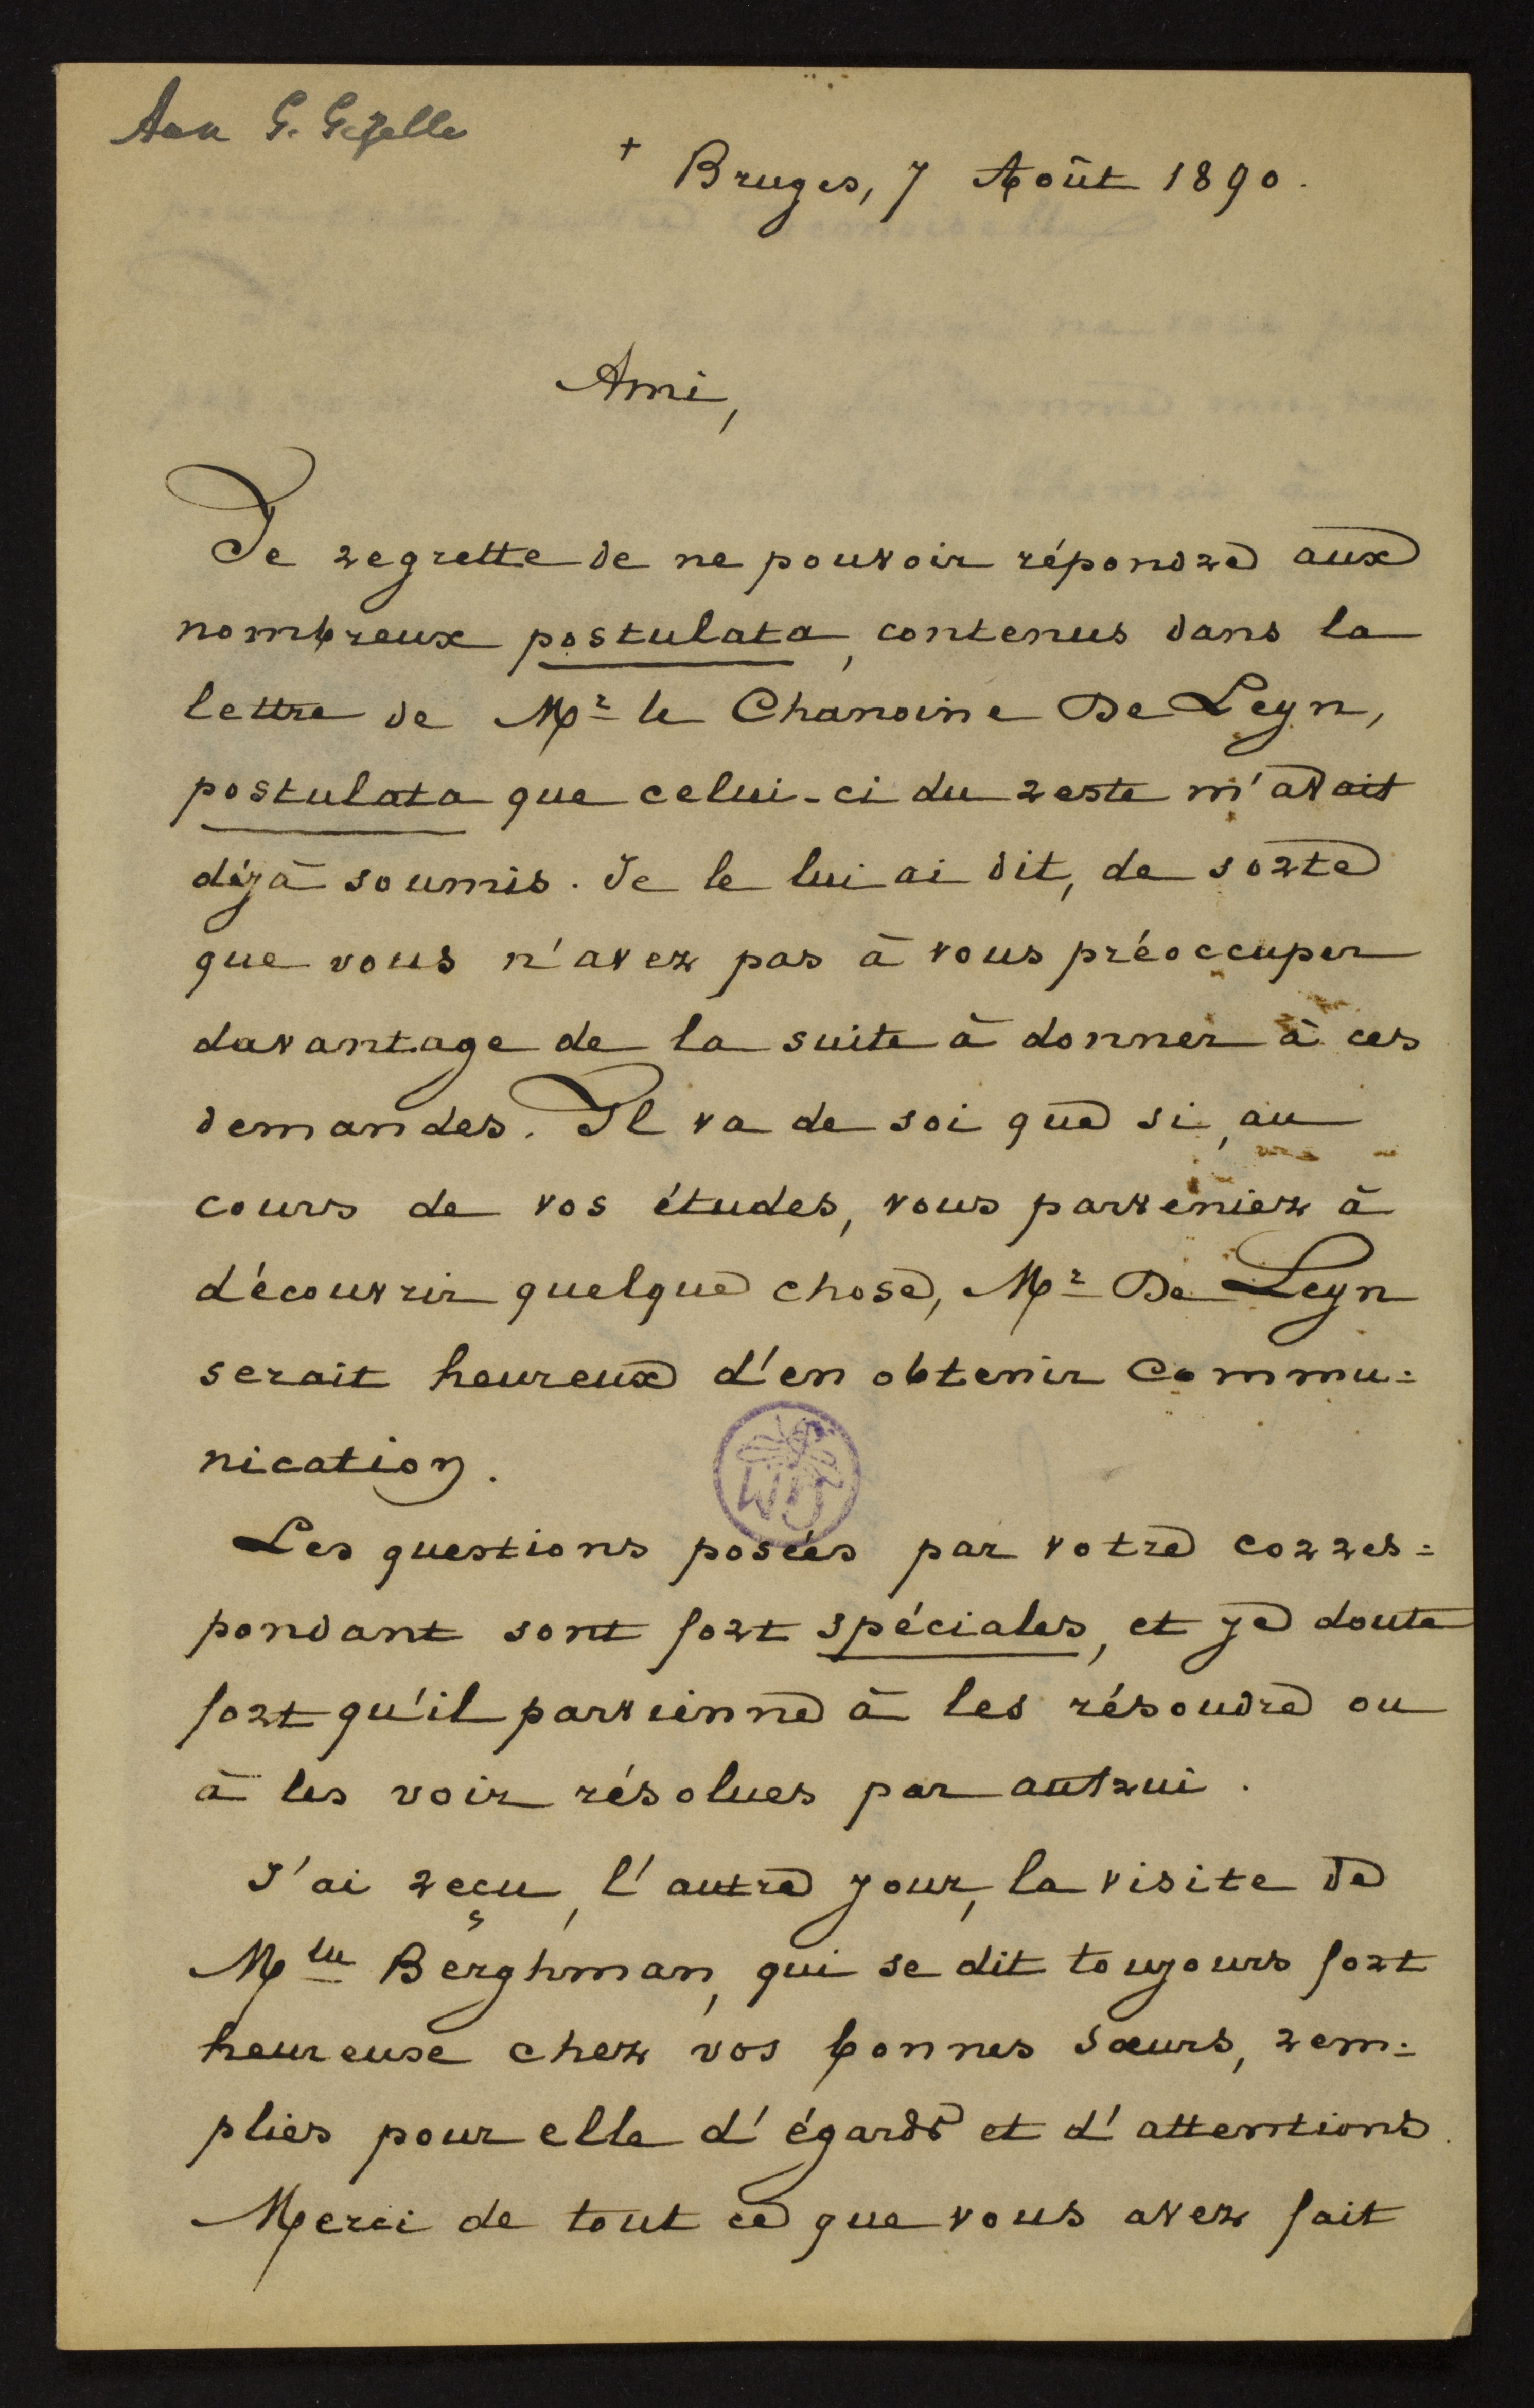 Aan G. Gezelle
+ Bruges, 7 Août 1890.
Ami,
Je regrette de ne pouvoir répondre aux
nombreux postulata, contenus dans la
lettre de Mr le Chanoine De Leyn,
postulata que celui-ci du reste m'avait
déjà soumis. Je le lui ai dit, de sorte
que vous n'avez pas à vous préoccuper
davantage de la suite à donner à ces
demandes. Il va de soi que si, au
cours de vos études, vous parveniez à
découvrir quelque chose, Mr De Leyn
serait heureux d'en obtenir commu=
nication.
Les questions posées par votre corres=
pondant sont fort spéciales, et je doute
fort qu'il parvienne à les résoudre ou
à les voir résolues par autrui.
J'ai reçu, l'autre jour, la visite de
Mlle Berghman, qui se dit toujours fort
heureuse chez vos bonnes sœurs, rem=
plies pour elle d'égards et d'attentions.
Merci de tout ce que vous avez fait